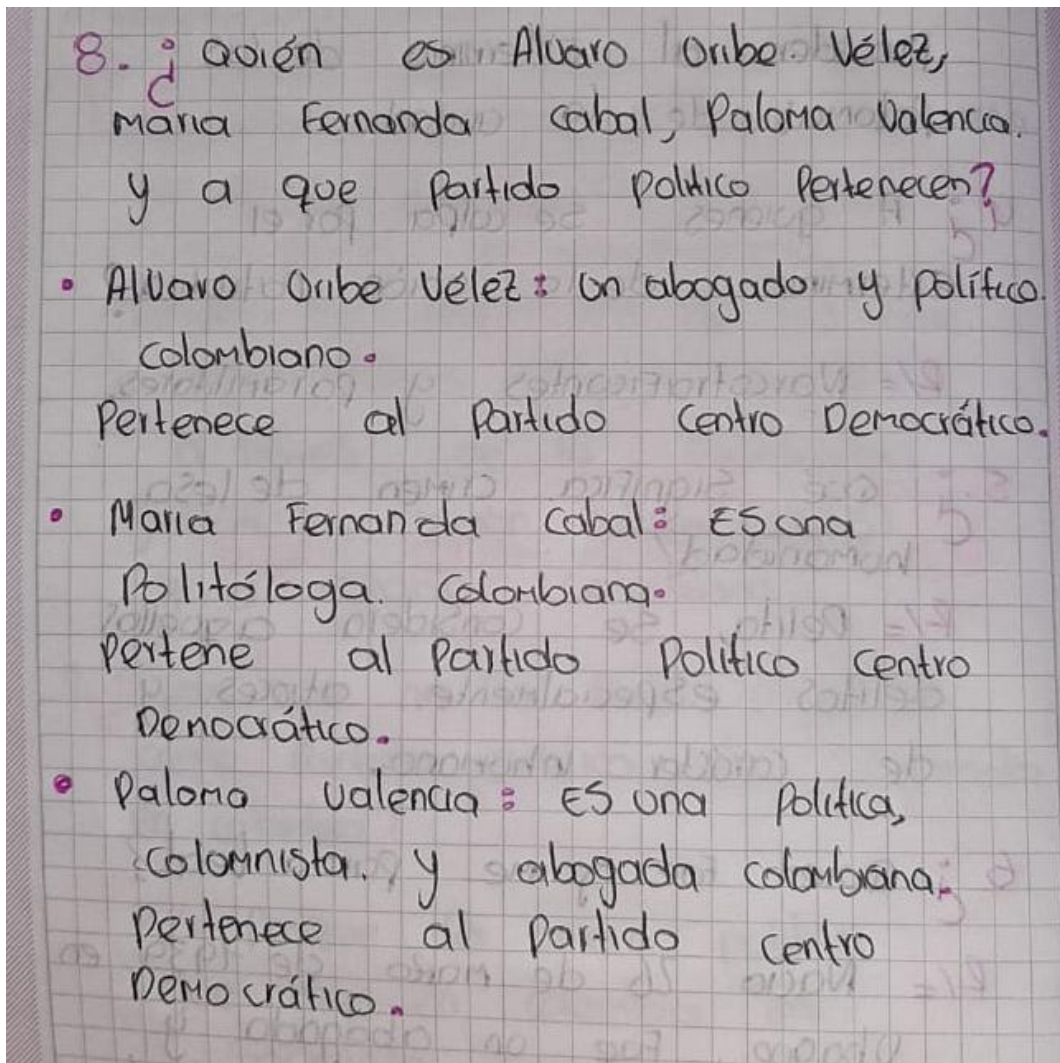 8. ¿ Quién es Alvaro Uribe Vélez,
Maria Fernanda Cabal, Paloma Valencia.
y a que Partido politico Pertenecen?
• Alvaro Uribe Vélez: un abogado y político
colombiano.
Pertenece al Partido Centro Democrático.
• Maria Fernanda Cabal: ES una
Politóloga. Colombiana.
pertene al Partido Político centro
Denocrático.
• Paloma Valencia: ES una Política,
columnista. y abogada colombiana.
Pertenece al Partido Centro
Democrático.